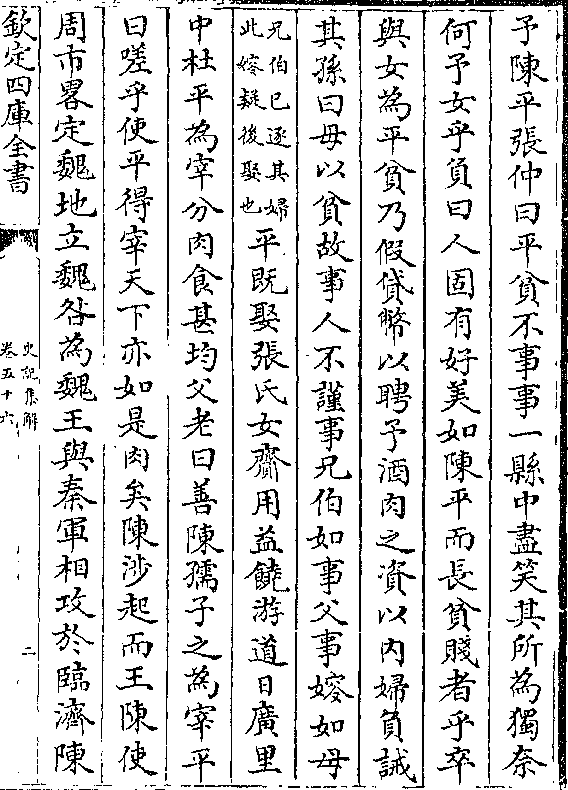 予陳平張仲曰平貧不事事一縣中盡笑其所為獨奈
何予女乎負曰人固有好美如陳平而長貧賤者乎卒
與女為平貧乃假貸幣以聘予酒肉之資以內婦負誡
其孫曰毋以貧故事人不謹事兄伯如事父事嫂如母
兄伯已逐其婦
此嫂疑後娶也
平既娶張氏女齎用益饒游道日廣里
中社平為宰分肉食甚均父老曰善陳孺子之為宰平
曰嗟乎使平得宰天下亦如是肉矣陳涉起而王陳使
周市畧定魏地立魏咎為魏王與秦軍相攻於臨濟陳
欽定四庫全書
史記集解
卷五十六
二